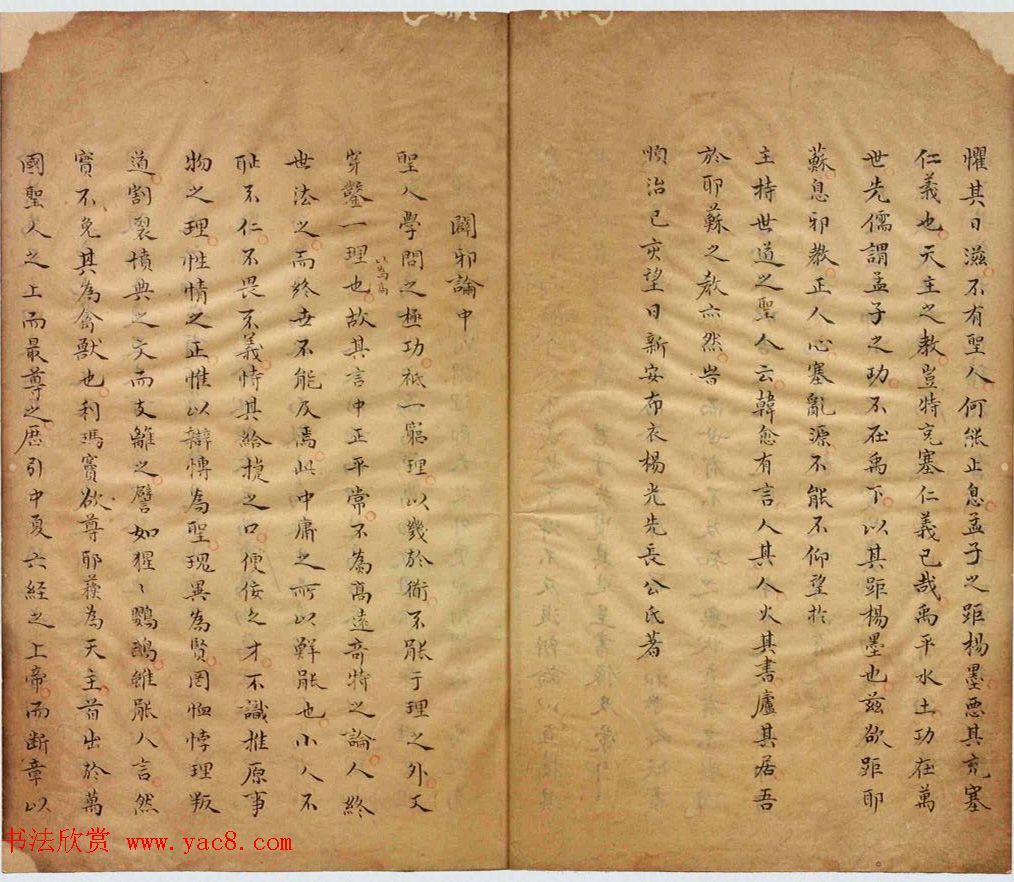 懼其日滋不有聖人何能止息孟子之距楊墨惡其充塞
仁義也天主之教豈特充塞仁義已哉禹平水土功在萬
世先儒謂孟子之功不在禹下以其距楊墨也茲欲距耶
蘇息邪教正人心塞亂源不能不仰望於
主持世道之聖人云韓愈有言人其人火其書廬其居吾
於耶蘇之教亦然旹
順治己亥望日新安布衣楊光先長公氏著
闢邪論中
聖人學問之極功祗一窮理以幾於衜不能于理之外又
穿鑿一理以為高也故其言中正平常不為高遠奇特之論人終
世法之而終世不能及焉此中庸之所以鮮能也小人不
恥不仁不畏不義恃其給捷之口便佞之才不識推原事
物之理性情之正惟以辯慱為聖瑰異為賢罔恤悖理叛
道割裂墳典之文而支離之譬如猩〻鸚鵡雖能人言然
實不免其為禽獸也利瑪竇欲尊耶蘇為天主首出於萬
國聖人之上而最尊之歷引中夏六經之上帝而斷章以
书法欣赏 www.yac8.com